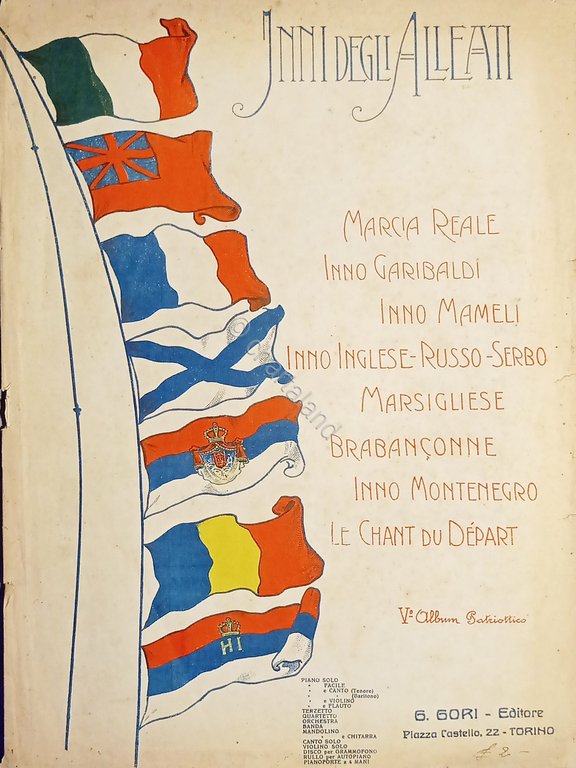 INNI DEGLI ALLEATI
MARCIA REALE
INNO GARIBALDI
INNO MAMELI
INNO INGLESE-RUSSO-SERBO
MARSIGLIESE
BRABANÇONNE
INNO MONTENEGRO
LE CHANT DU DÉPART
Vº Album Patriottico
HI
PIANO SOLO
" FACILE
" e CANTO (Tenore)
" " (Baritono)
" e VIOLINO
" e FLAUTO
TERZETTO
QUARTETTO
ORCHESTRA
BANDA
MANDOLINO
" e CHITARRA
CANTO SOLO
VIOLINO SOLO
DISCO per GRAMMOFONO
RULLO per AUTOPIANO
PIANOFORTE a 4 MANI
G. GORI - Editore
Piazza Castello, 22 - TORINO
£ 2.-